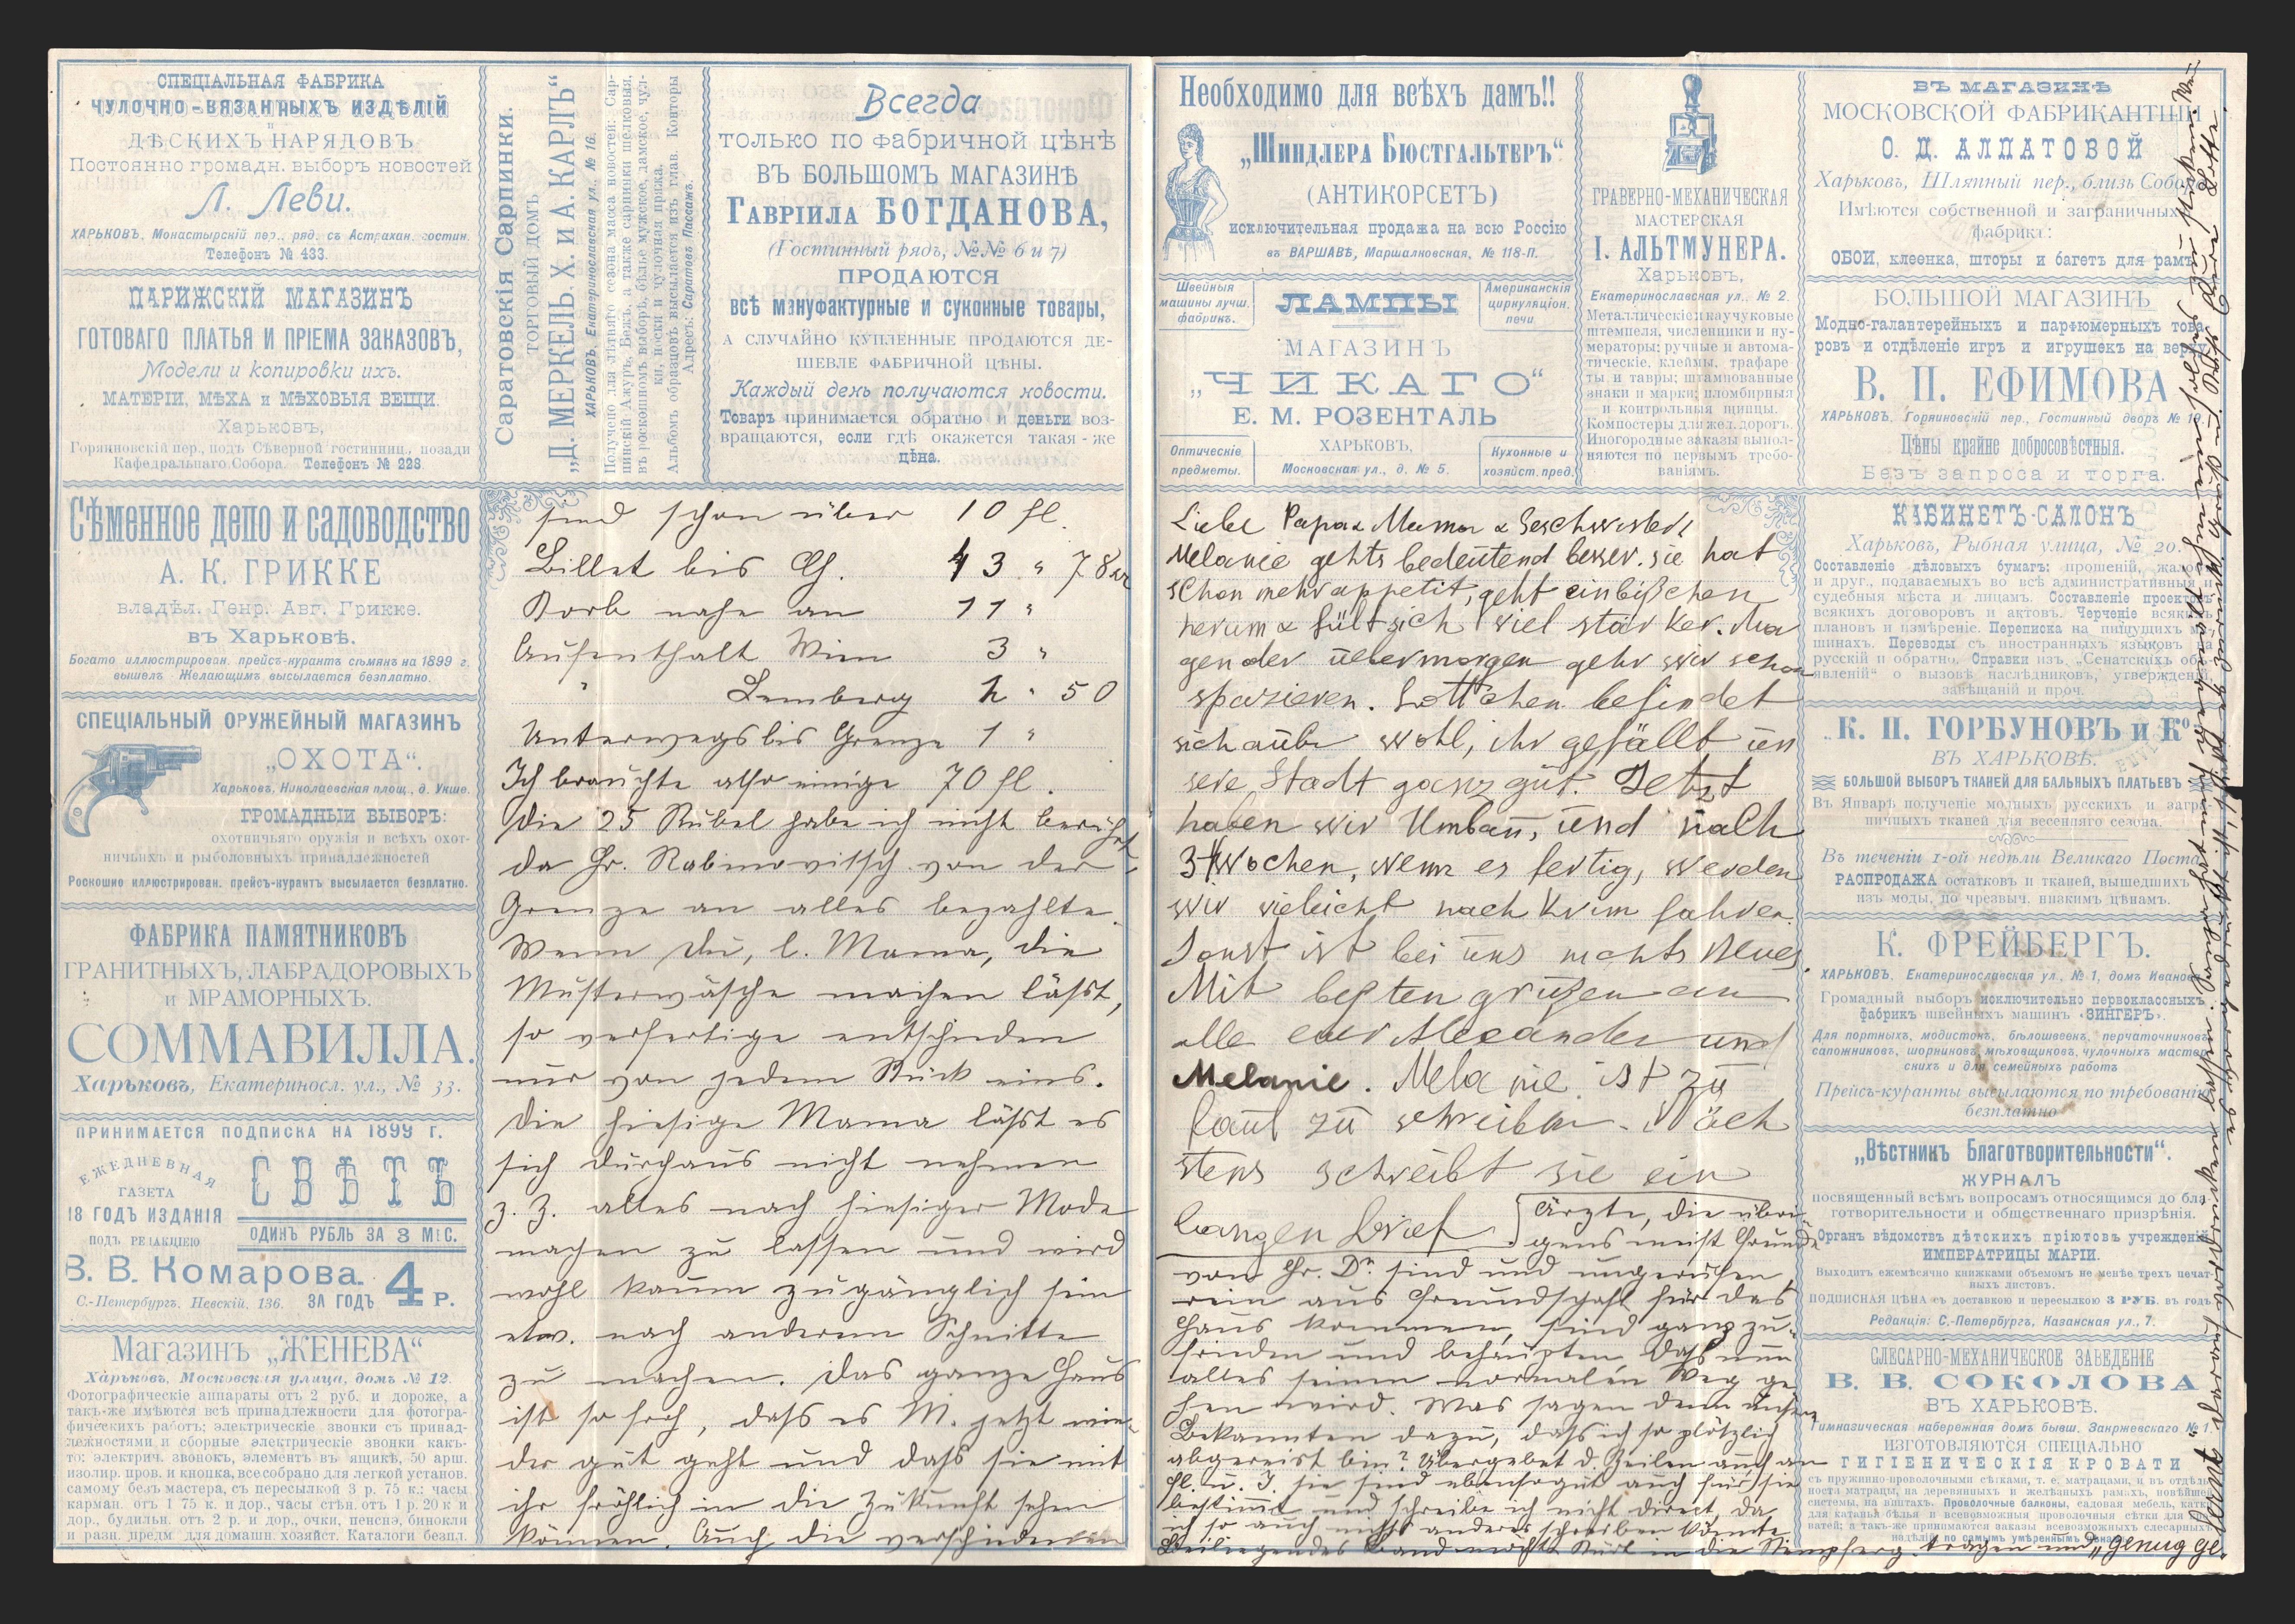 СПЕЦІАЛЬНАЯ ФАБРИКА
ЧУЛОЧНО-ВЯЗАННЫХЪ ИЗДѢЛІЙ
и
ДѢСКИХЪ НАРЯДОВЪ
Постоянно громадн. выборъ новостей
Л. Леви.
ХАРЬКОВЪ, Монастырскій пер., ряд. съ Астрахан. гостин.
Телефонъ № 433.
ПАРИЖСКІЙ МАГАЗИНЪ
ГОТОВАГО ПЛАТЬЯ И ПРІЕМА ЗАКАЗОВЪ,
Модели и копировки ихъ.
МАТЕРІИ, МѢХА и МѢХОВЫЯ ВЕЩИ.
Харьковъ,
Горяиновскій пер., подъ Сѣверной гостинниц., позади
Кафедральнаго Собора. Телефонъ № 228.
Саратовскія Сарпинки.
ТОРГОВЫЙ ДОМЪ
„Д. МЕРКЕЛЬ, Х. И А. КАРЛЪ“
ХАРЬКОВЪ Екатеринославская ул., № 16.
Получено для лѣтняго сезона масса новостей: Сар-
пинскій Ажуръ, Бежъ, а также сарпинки шелковыя,
въ роскошномъ выборѣ, бѣлье мужское, дамское, чул-
ки, носки и чулочная пряжа.
Альбомъ образцовъ высылается изъ глав. Конторы
Адресъ: Саратовъ Пассажъ.
Всегда
ТОЛЬКО ПО ФАБРИЧНОЙ ЦѢНѢ
ВЪ БОЛЬШОМЪ МАГАЗИНѢ
ГАВРІИЛА БОГДАНОВА,
(Гостинный рядъ, №№ 6 и 7)
ПРОДАЮТСЯ
всѣ мануфактурные и суконные товары,
А СЛУЧАЙНО КУПЛЕННЫЕ ПРОДАЮТСЯ ДЕ-
ШЕВЛЕ ФАБРИЧНОЙ ЦѢНЫ.
Каждый день получаются новости.
Товаръ принимается обратно и деньги воз-
вращаются, если гдѣ окажется такая-же
цѣна.
Сѣменное депо и садоводство
А. К. ГРИККЕ
владѣл. Генр. Авг. Грикке.
въ Харьковѣ.
Богато иллюстрирован. прейсъ-курантъ сѣмянъ на 1899 г.
вышелъ Желающимъ высылается безплатно.
СПЕЦІАЛЬНЫЙ ОРУЖЕЙНЫЙ МАГАЗИНЪ
„ОХОТА“.
Харьковъ, Николаевская площ., д. Унше.
ГРОМАДНЫЙ ВЫБОРЪ:
охотничьяго оружія и всѣхъ охот-
ничьихъ и рыболовныхъ принадлежностей
Роскошно иллюстрирован. прейсъ-курантъ высылается безплатно.
ФАБРИКА ПАМЯТНИКОВЪ
ГРАНИТНЫХЪ, ЛАБРАДОРОВЫХЪ
и МРАМОРНЫХЪ.
СОММАВИЛЛА.
Харьковъ, Екатериносл. ул., № 33.
ПРИНИМАЕТСЯ ПОДПИСКА НА 1899 Г.
ЕЖЕДНЕВНАЯ
ГАЗЕТА
18 ГОДЪ ИЗДАНІЯ
ПОДЪ РЕДАКЦІЕЮ
СВѢТЪ
ОДИНЪ РУБЛЬ ЗА 3 МѢС.
В. В. Комарова.
С.-Петербургъ. Невскій, 136. ЗА ГОДЪ 4 Р.
Магазинъ „ЖЕНЕВА“
Харьковъ, Московская улица, домъ № 12.
Фотографическіе аппараты отъ 2 руб. и дороже, а
такъ-же имѣются всѣ принадлежности для фотогра-
фическихъ работъ; электрическіе звонки съ принад-
лежностями и сборные электрическіе звонки какъ-
то: электрич. звонокъ, элементъ въ ящикѣ, 50 арш.
изолир. пров. и кнопка, все собрано для легкой установ.
самому безъ мастера, съ пересылкой 3 р. 75 к.: часы
карман. отъ 1 75 к. и дор., часы стѣн. отъ 1 р. 20 к и
дор., будильн. отъ 2 р. и дор., очки, пенснэ, бинокли
и разн. предм для домашн. хозяйст. Каталоги безпл.
sind schon über 10 fl.
Billet bis Ch. 43 " 78 kr
Vorb nahe an 11 "
Aufenthalt Wien 3 "
" Lemberg 2 " 50
Unterwegs bis Grenze 1 "
Ich brauchte also einige 70 fl.
Die 25 Rubel habe ich nicht berührt,
da Hr. Rabinovitsch von der
Grenze an alles bezahlte.
Wenn Du, l. Mama, die
Musterwäsche machen läßt,
so verfertige entschieden
nur von jedem Stück eins.
Die hiesige Mama läßt es
sich durchaus nicht nehmen
z. Z. alles nach hiesiger Mode
machen zu lassen und wird
wohl kaum zugänglich sein
etw. nach anderem Schnitte
zu machen. Das ganze Haus
ist so froh, daß es M. jetzt wie-
der gut geht und daß sie mit
ihr fröhlich in die Zukunft sehen
können. Auch die verschiedenen
Необходимо для всѣхъ дамъ!!
„Шиндлера Бюстгальтеръ“
(АНТИКОРСЕТЪ)
исключительная продажа на всю Россію
въ ВАРШАВѢ, Маршалковская, № 118-П.
Швейныя
машины лучш.
фабрикъ.
ЛАМПЫ
Американскія
циркуляціон.
печи
МАГАЗИНЪ
„ЧИКАГО“
Е. М. РОЗЕНТАЛЬ
ХАРЬКОВЪ,
Московская ул., д. № 5.
Оптическіе
предметы.
Кухонные и
хозяйст. пред.
ГРАВЕРНО-МЕХАНИЧЕСКАЯ
МАСТЕРСКАЯ
І. АЛЬТМУНЕРА.
Харьковъ,
Екатеринославская ул., № 2.
Металлическіе и каучуковые
штемпеля, численники и ну-
мераторы; ручные и автома-
тическіе, клеймы, трафаре
ты и тавры; штампованные
знаки и марки; пломбирныя
и контрольныя щипцы.
Компостеры для жел. дорогъ.
Иногородные заказы выпол-
няются по первымъ требо-
ваніямъ.
ВЪ МАГАЗИНѢ
МОСКОВСКОЙ ФАБРИКАНТШИ
О. Д. АЛПАТОВОЙ
Харьковъ, Шляпный пер., близь Собора
Имѣются собственной и заграничныхъ
фабрикъ:
ОБОИ, клеенка, шторы и багетъ для рамъ
БОЛЬШОЙ МАГАЗИНЪ
Модно-галантерейныхъ и парфюмерныхъ това
ровъ и отдѣленіе игръ и игрушекъ на верху
В. П. ЕФИМОВА
ХАРЬКОВЪ, Горяиновскій пер., Гостинный дворъ № 10.
Цѣны крайне добросовѣстныя.
Безъ запроса и торга.
Liebe Papa & Mama & Geschwister!
Melanie gehts bedeutend besser. sie hat
schon mehr appetit, geht ein bißchen
herum & fült sich viel stärker. Mo
gen oder uebermorgen gehn wir schon
spazieren. Lottchen befindet
sich aübe wohl, ihr gefällt ün
sere Stadt ganz güt. Jetzt
haben wir Umbaü, ünd nach
3-4 Wochen, wenn es fertig, werden
wir vieleicht nach Krim fahren.
Sonst ist bei üns nichts Neues.
Mit beßten grüßen an
alle eur Alexander und
Melanie. Melanie ist zü
faul zü schreiben. Näch
stens schreibt sie ein
langen Brief.
Ärzte, die übri-
gens meist Freunde
von Hr. Dr. sind und ungerufen
rein aus Freundschaft für das
Haus kommen, sind ganz zu-
frieden und behaupten, daß nun
alles seinen normalen Weg ge
hen wird. Was sagen denn unsere
Bekannten dazu, daß ich so plötzlich
abgereist bin? Übergebet d. Zeilen auch an
Fl. u. J. sie sind ebensogut auch für sie
bestimmt und schreibe ich nicht direct, da
ich so auch nichts anderes schreiben könnte.
КАБИНЕТЪ-САЛОНЪ
Харьковъ, Рыбная улица, № 20.
Составленіе дѣловыхъ бумагъ: прошеній, жалобъ
и друг., подаваемыхъ во всѣ административныя и
судебныя мѣста и лицамъ. Составленіе проектовъ
всякихъ договоровъ и актовъ. Черченіе всякихъ
плановъ и измѣреніе. Переписка на пишущихъ ма
шинахъ. Переводы съ иностранныхъ языковъ на
русскій и обратно. Справки изъ „Сенатскихъ объ-
явленій“ о вызовѣ наслѣдниковъ, утвержденіи
завѣщаній и проч.
К. П. ГОРБУНОВЪ и Ко.
ВЪ ХАРЬКОВѢ.
БОЛЬШОЙ ВЫБОРЪ ТКАНЕЙ ДЛЯ БАЛЬНЫХЪ ПЛАТЬЕВЪ
Въ Январѣ полученіе модныхъ русскихъ и загра
ничныхъ тканей для весенняго сезона.
Въ теченіи 1-ой недѣли Великаго Поста
РАСПРОДАЖА остатковъ и тканей, вышедшихъ
изъ моды, по чрезвыч. низкимъ цѣнамъ.
К. ФРЕЙБЕРГЪ.
ХАРЬКОВЪ, Екатеринославская ул., № 1, домъ Иванова
Громадный выборъ исключительно первоклассныхъ
фабрикъ швейныхъ машинъ «ЗИНГЕРЪ».
Для портныхъ, модистокъ, бѣлошвеекъ, перчаточниковъ
сапожниковъ, шорниковъ, мѣховщиковъ, чулочныхъ мастер
скихъ и для семейныхъ работъ
Прейсъ-куранты высылаются по требованію
безплатно
„Вѣстникъ Благотворительности“.
ЖУРНАЛЪ
посвященный всѣмъ вопросамъ относящимся до бла
готворительности и общественнаго призрѣнія.
Органъ вѣдомствъ дѣтскихъ пріютовъ учрежденій
ИМПЕРАТРИЦЫ МАРІИ.
Выходитъ ежемѣсячно книжками объемомъ не менѣе трехъ печат-
ныхъ листовъ.
ПОДПИСНАЯ ЦѢНА съ доставкою и пересылкою 3 РУБ. въ годъ
Редакція: С.-Петербургъ, Казанская ул., 7.
СЛЕСАРНО-МЕХАНИЧЕСКОЕ ЗАВЕДЕНІЕ
В. В. СОКОЛОВА
ВЪ ХАРЬКОВѢ.
Гимназическая набережная домъ бывш. Занржевскаго № 1.
ИЗГОТОВЛЯЮТСЯ СПЕЦІАЛЬНО
ГИГІЕНИЧЕСКІЯ КРОВАТИ